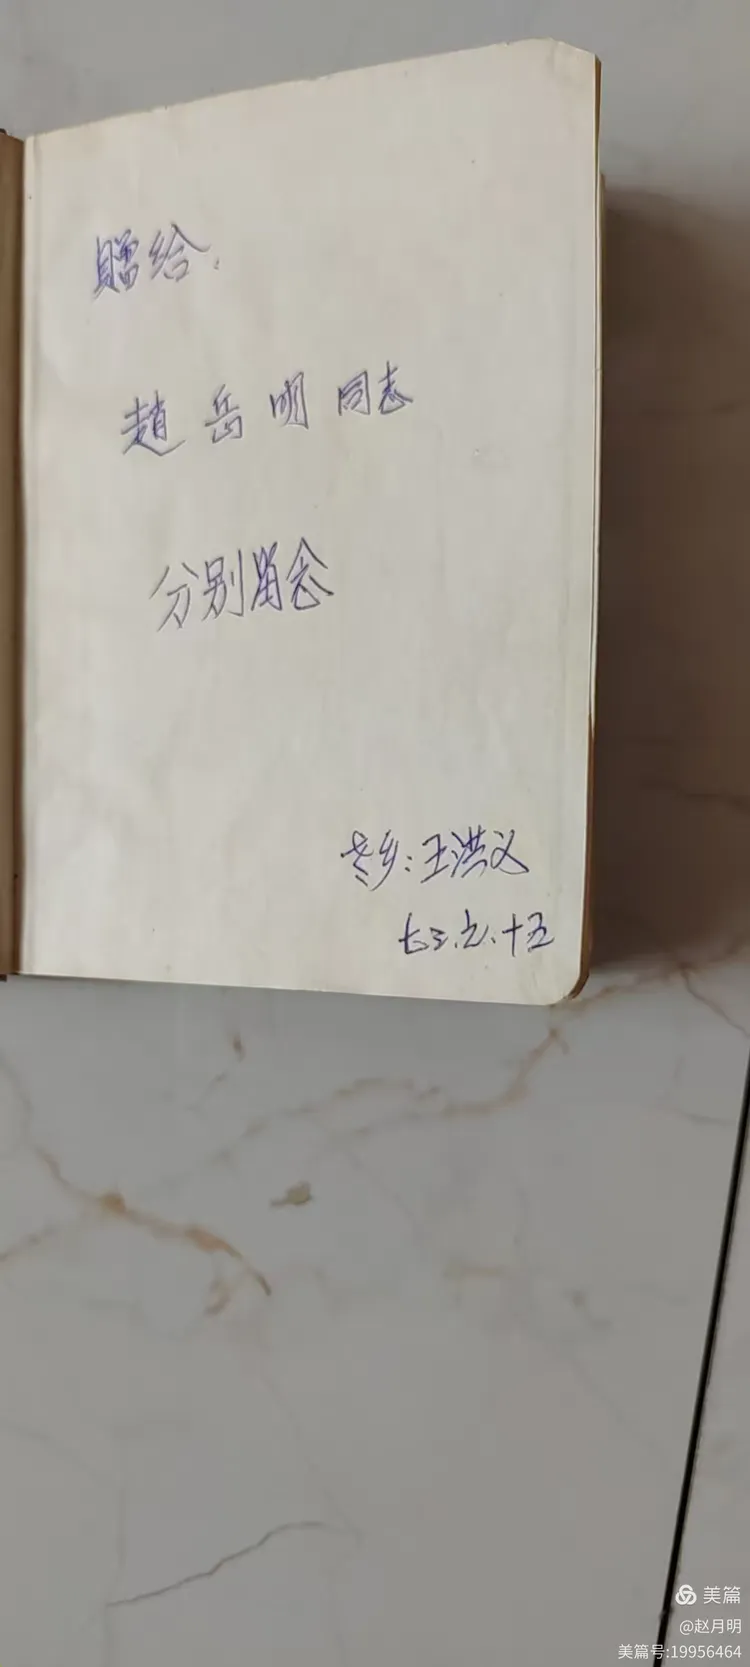 贈给：
趙岳明同志
分别留念
老乡：王洪义
七三.元.十五
美篇
@赵月明
美篇号:19956464